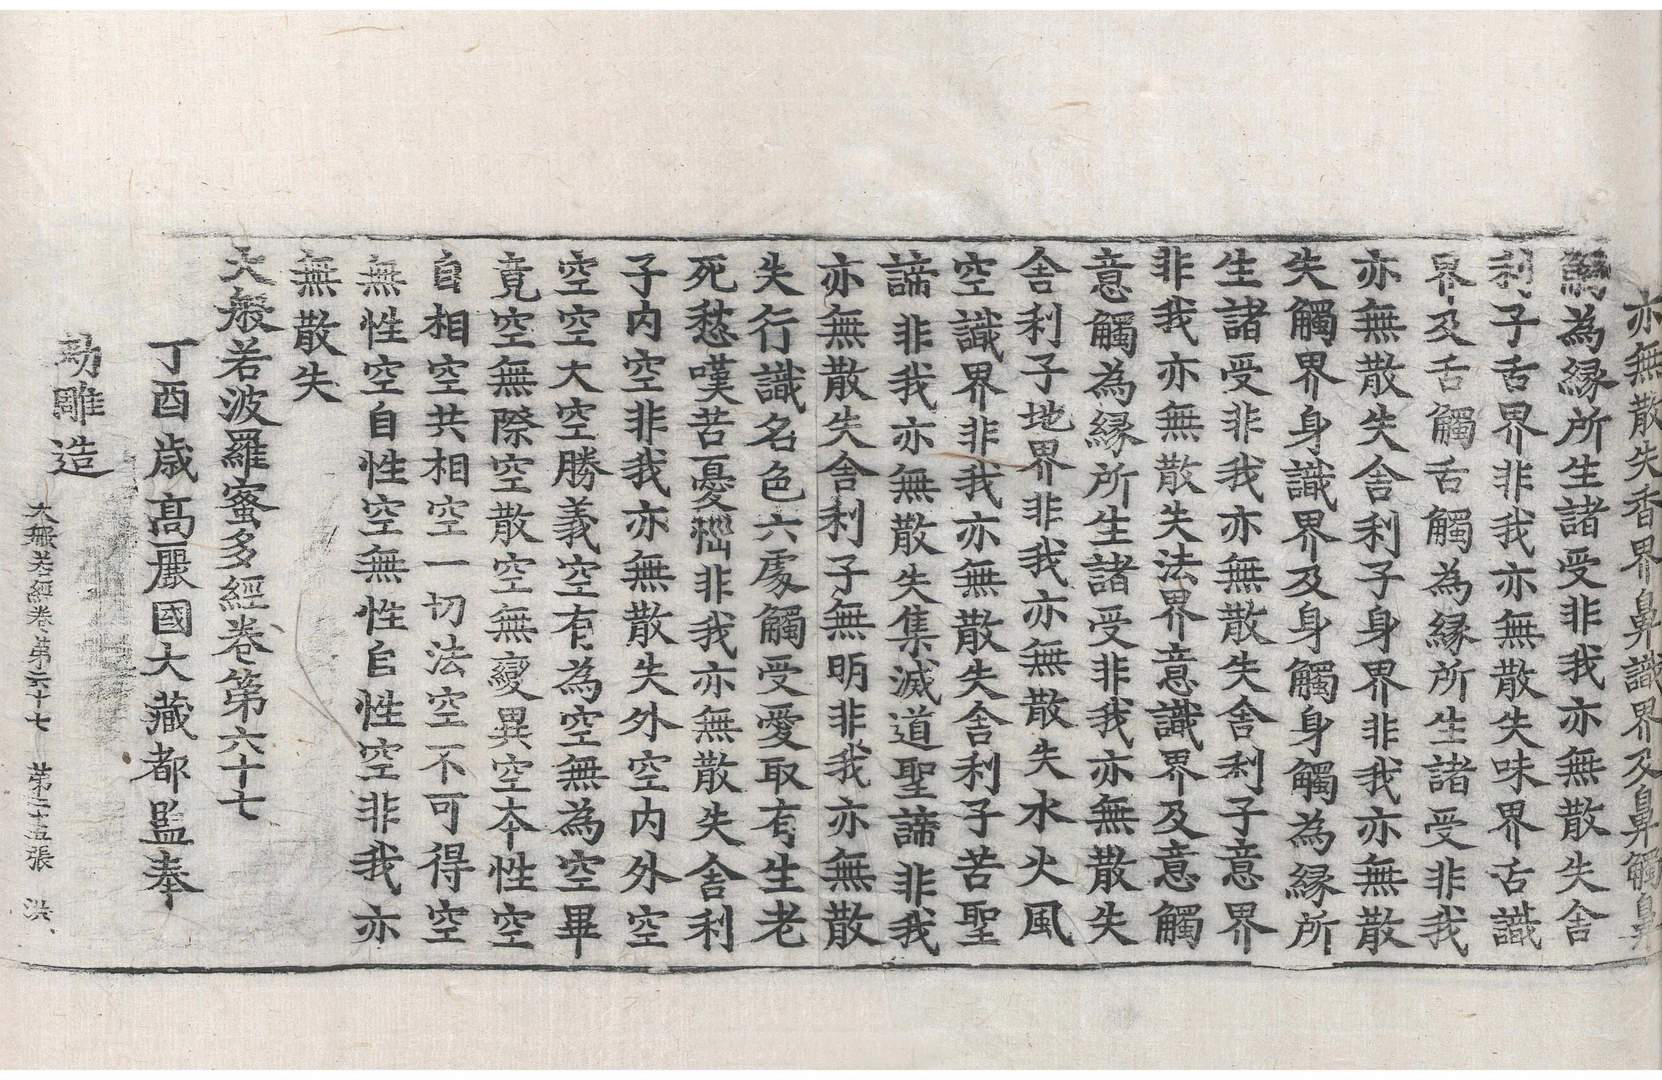 亦無散失香界鼻識界及鼻觸鼻
觸為緣所生諸受非我亦無散失舍
利子舌界非我亦無散失味界舌識
界及舌觸舌觸為緣所生諸受非我
亦無散失舍利子身界非我亦無散
失觸界身識界及身觸身觸為緣所
生諸受非我亦無散失舍利子意界
非我亦無散失法界意識界及意觸
意觸為緣所生諸受非我亦無散失
舍利子地界非我亦無散失水火風
空識界非我亦無散失舍利子苦聖
諦非我亦無散失集滅道聖諦非我
亦無散失舍利子無明非我亦無散
失行識名色六處觸受愛取有生老
死愁嘆苦憂惱非我亦無散失舍利
子內空非我亦無散失外空內外空
空空大空勝義空有為空無為空畢
竟空無際空散空無變異空本性空
自相空共相空一切法空不可得空
無性空自性空無性自性空非我亦
無散失
大般若波羅蜜多經卷第六十七
丁酉歲高麗國大藏都監奉
勑雕造
大般若經卷第六十七 第二十五張 洪